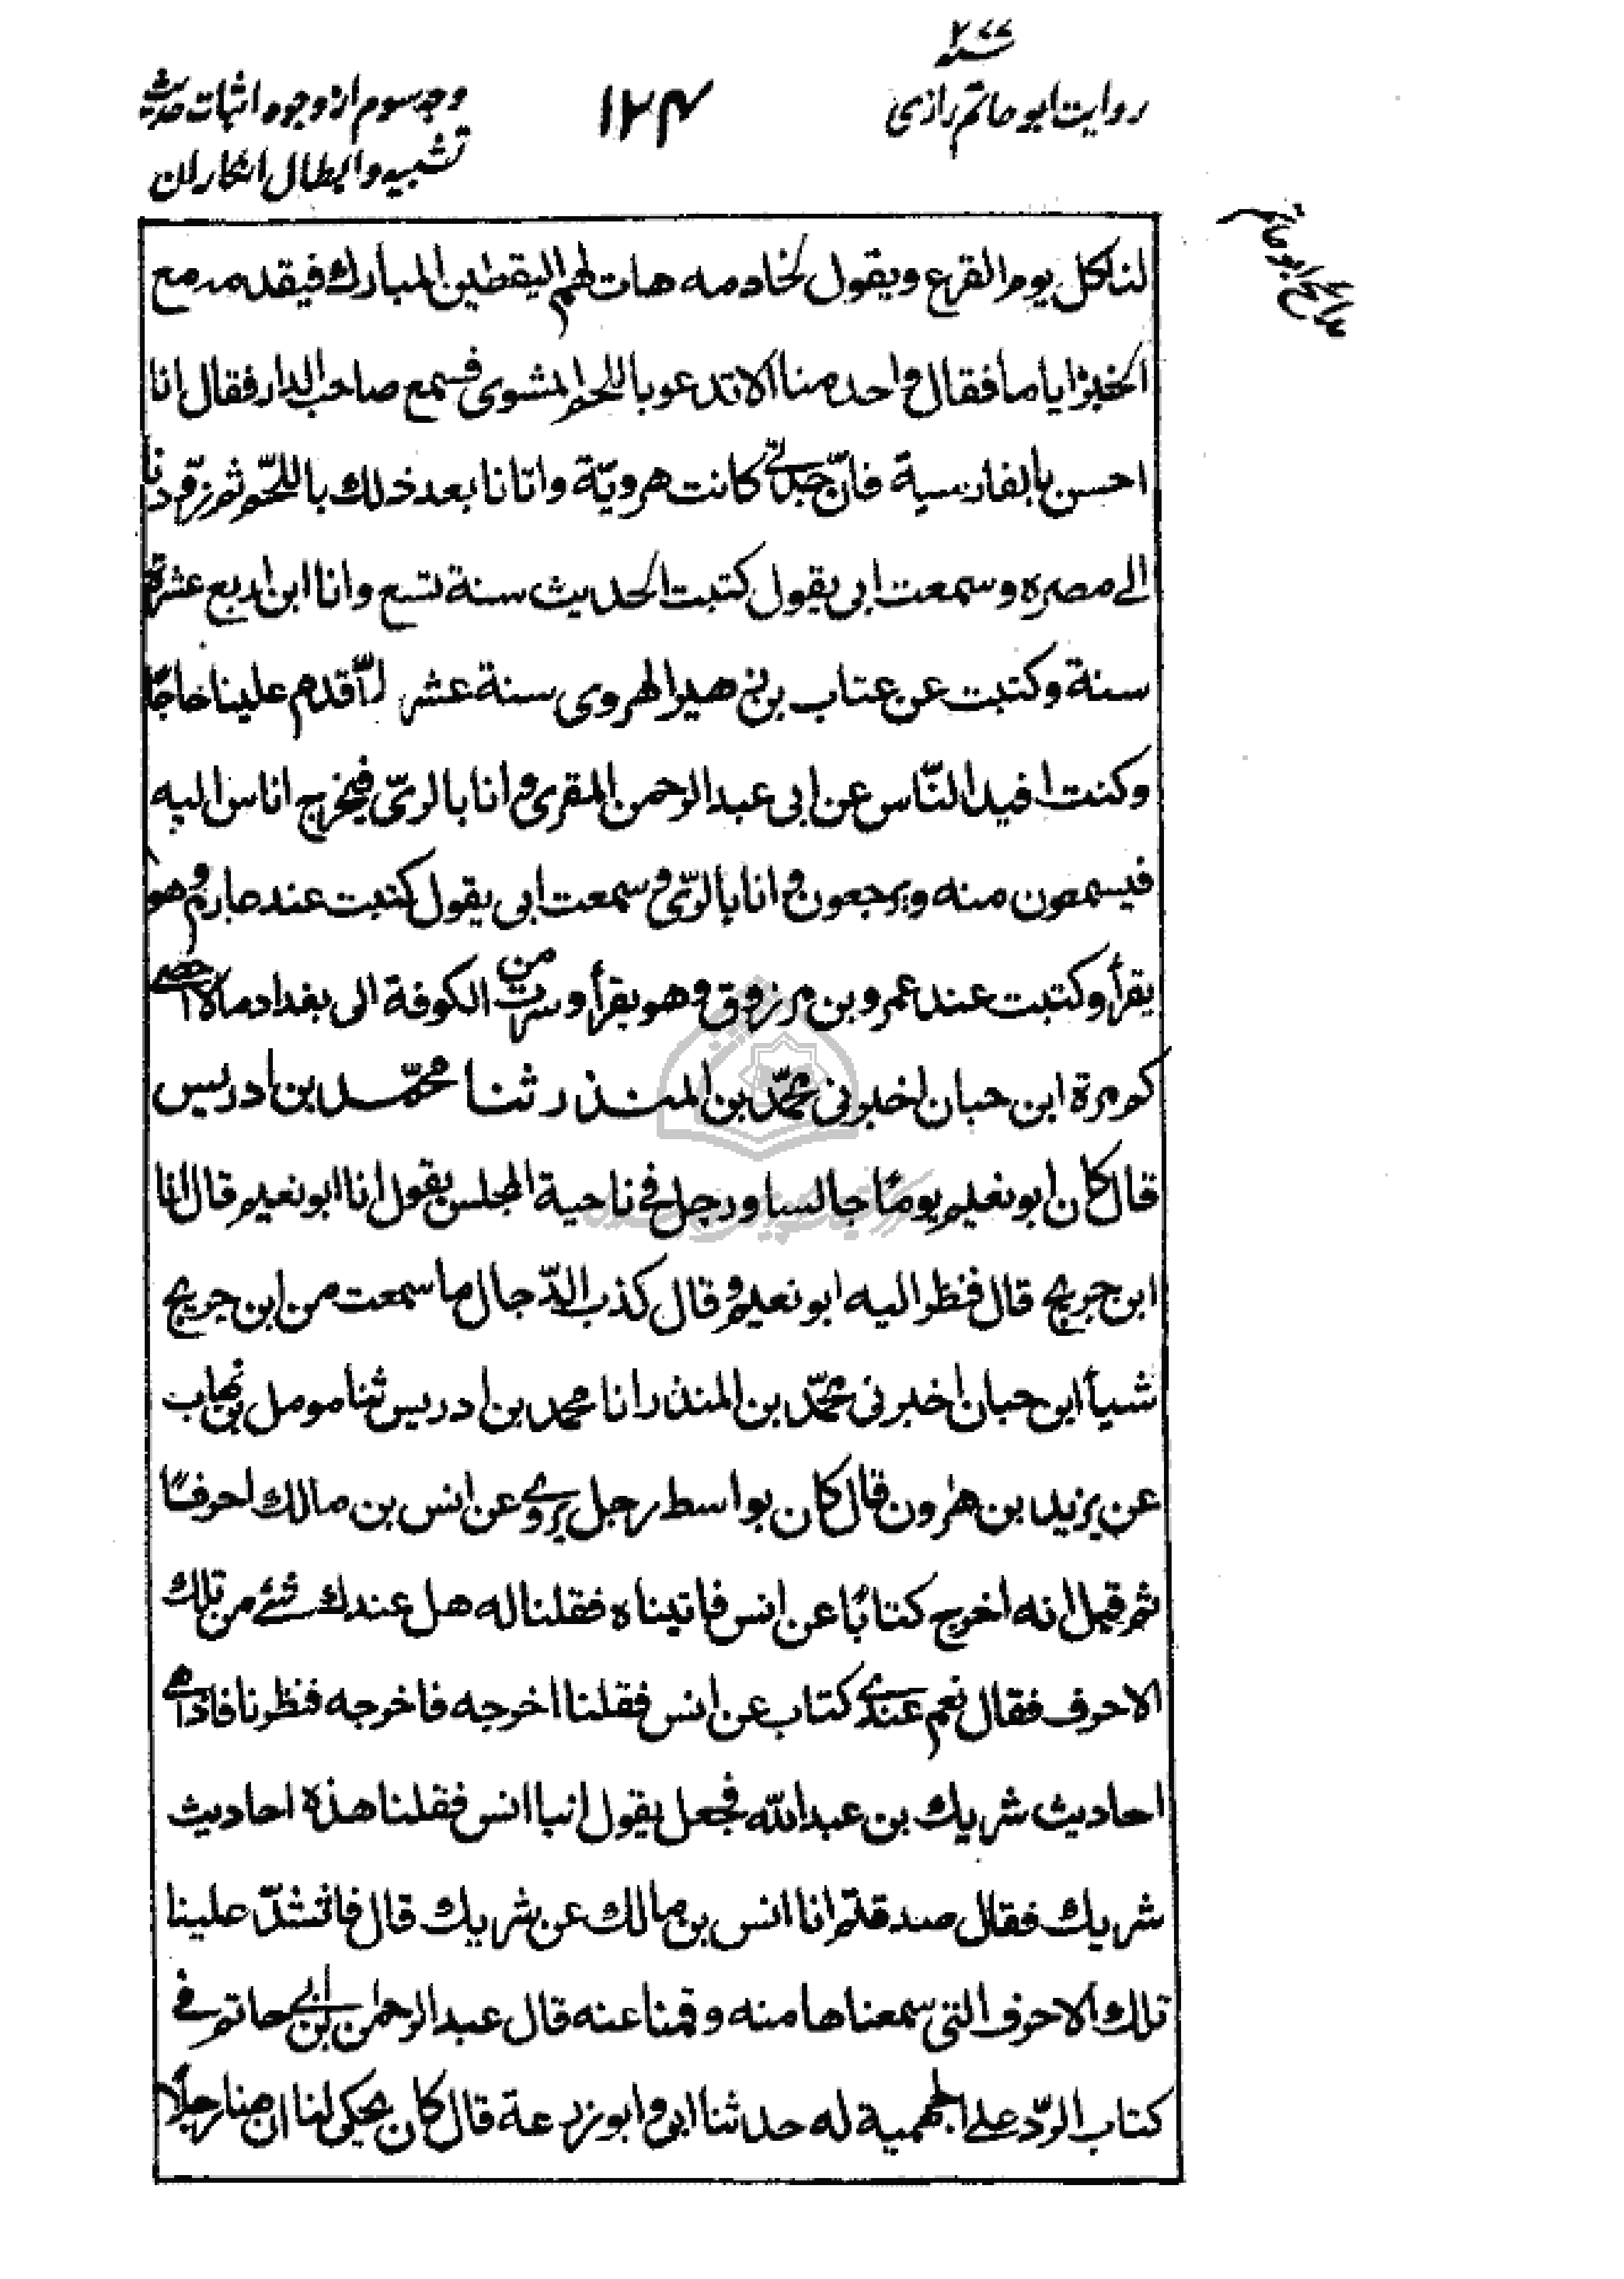 ۲۷۷
روایت ابو حاتم رازی
۱۲۴
وجه سوم از وجوه اثبات حدیث
تشبیه و ابطال انکار ان
مدائح ابو حاتم
لنا كل يوم القرع ويقول لخادمه هات لهم اليقطين المبارك فيقدمه مع
الخبز اياما فقال واحد منا الا تدعو باللحم المشوى فسمع صاحب الدار فقال انا
احسن بالفارسية فانّ جدتى كانت هرويّة واتانا بعد ذلك باللحم ثم زوّدنا
الى مصره وسمعت ابى يقول كتبت الحديث سنة تسع وانا ابن اربع عشرة
سنة وكتبت عن عتاب بن زهير الهروى سنة عشر لمّا قدم علينا حاجًا
وكنت افيد النّاس عن ابى عبد الرحمن المقرى وانا بالرىّ فيخرج اناس اليه
فيسمعون منه ويرجعون وانا بالرىّ وسمعت ابى يقول كتبت عند عارم وهو
يقرأ وكتبت عند عمرو بن مرزوق وهو يقرأ وسرت من الكوفة الى بغداد مالا احصى
كم مرة ابن حبان اخبرنى محمّد بن المنذر ثنا محمّد بن ادريس
قال كان ابو نعيم يومًا جالسا ورجل فى ناحية المجلس يقول انا ابو نعيم قال انا
ابن جريج قال فنظر اليه ابو نعيم وقال كذب الدّجال ما سمعت من ابن جريج
شيأ ابن حبان اخبرنى محمّد بن المنذر انا محمد بن ادريس ثنا مومل بن يهاب
عن يزيد بن هٰرون قال كان بواسط رجل يروى عن انس بن مالك احرفًا
ثم قيل انه اخرج كتابًا عن انس فاتيناه فقلنا له هل عندك شئ من تلك
الاحرف فقال نعم عندى كتاب عن انس فقلنا اخرجه فاخرجه فنظرنا فاذا هى
احاديث شريك بن عبد الله فجعل يقول انبا انس فقلنا هذه احاديث
شريك فقال صدقتم انا انس بن مالك عن شريك قال فا علينا
تلك الاحرف التى سمعناها منه وقمنا عنه قال عبد الرحمٰن بن ابى حاتم فى
كتاب الردّ على الجهمية له حدثنا ابى وابو زرعة قال كان يحكى لنا ان هنا رجلًا